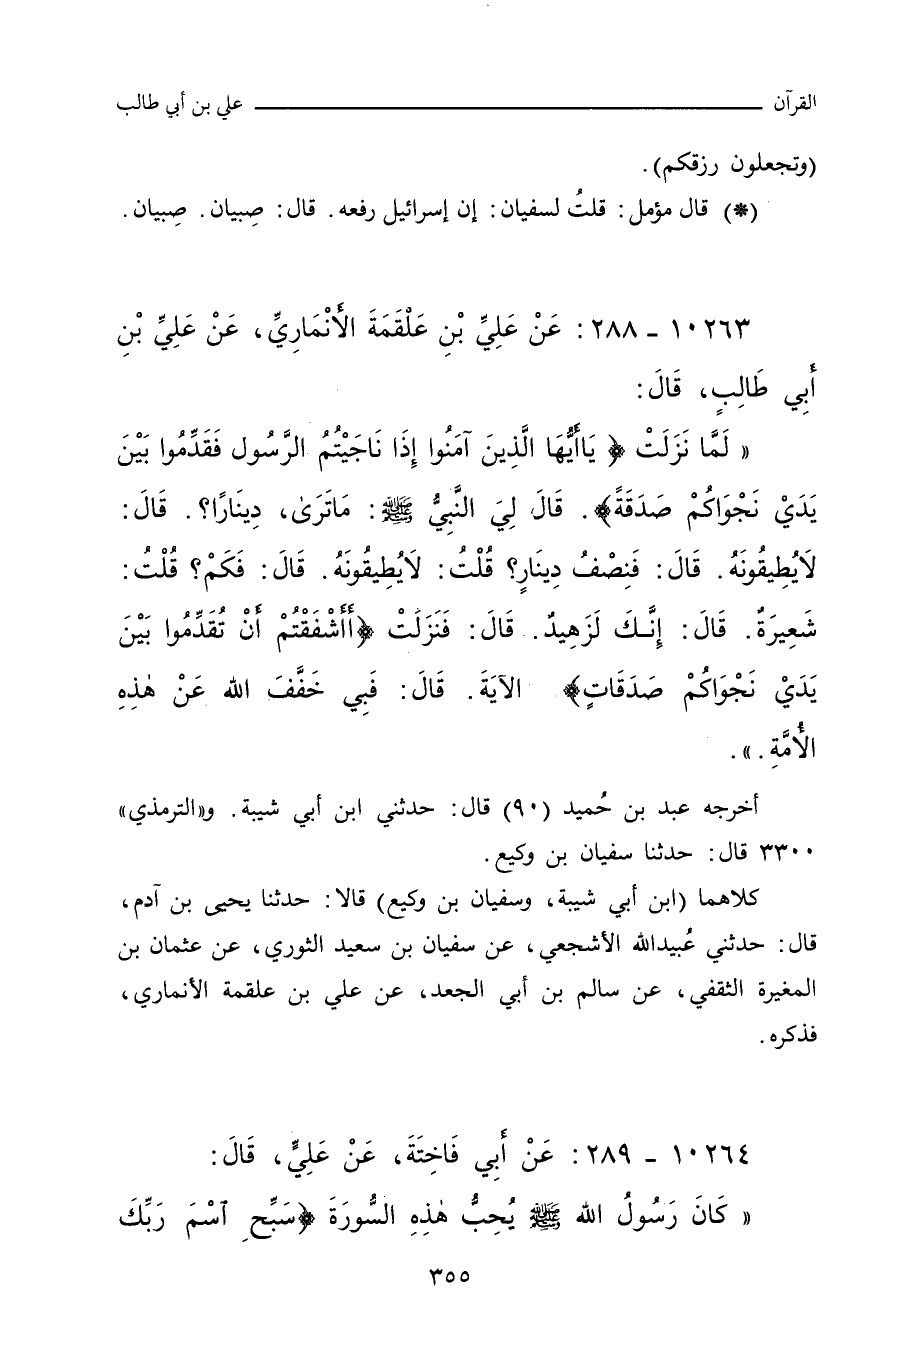 القرآن ــــــــــ علي بن أبي طالب
(وتجعلون رزقكم).
(*) قال مؤمل: قلتُ لسفيان: إن إسرائيل رفعه. قال: صِبيان. صِبيان.
١٠٢٦٣ - ٢٨٨: عَنْ عَلِيِّ بْنِ عَلْقَمَةَ الأَنْمَارِيِّ، عَنْ عَلِيِّ بْنِ
أَبِي طَالِبٍ، قَالَ:
« لَمَّا نَزَلَتْ ﴿ يَاأَيُّهَا الَّذِينَ آمَنُوا إِذَا نَاجَيْتُمُ الرَّسُول فَقَدِّمُوا بَيْنَ
يَدَيْ نَجْوَاكُمْ صَدَقَةً﴾. قَالَ لِيَ النَّبِيُّ ﷺ: مَاتَرَىٰ، دِينَارًا؟. قَالَ:
لَايُطِيقُونَهُ. قَالَ: فَنِصْفُ دِينَارٍ؟ قُلْتُ: لَايُطِيقُونَهُ. قَالَ: فَكَمْ؟ قُلْتُ:
شَعِيرَةٌ. قَالَ: إِنَّـكَ لَزَهِيدٌ. قَالَ: فَنَزَلَتْ ﴿أَأَشْفَقْتُمْ أَنْ تُقَدِّمُوا بَيْنَ
يَدَيْ نَجْوَاكُمْ صَدَقَاتٍ﴾ الآيَةَ. قَالَ: فَبِي خَفَّفَ الله عَنْ هٰذِهِ
الأُمَّةِ.».
أخرجه عبد بن حُميد (٩٠) قال: حدثني ابن أبي شيبة. و«الترمذي»
٣٣٠٠ قال: حدثنا سفيان بن وكيع.
كلاهما (ابن أبي شيبة، وسفيان بن وكيع) قالا: حدثنا يحيى بن آدم،
قال: حدثني عُبيدالله الأشجعي، عن سفيان بن سعيد الثوري، عن عثمان بن
المغيرة الثقفي، عن سالم بن أبي الجعد، عن علي بن علقمة الأنماري،
فذكره.
١٠٢٦٤ - ٢٨٩: عَنْ أَبِي فَاخِتَةَ، عَنْ عَلِيٍّ، قَالَ:
« كَانَ رَسُولُ الله ﷺ يُحِبُّ هٰذِهِ السُّورَةَ ﴿سَبِّحِ ٱسْمَ رَبِّكَ
٣٥٥